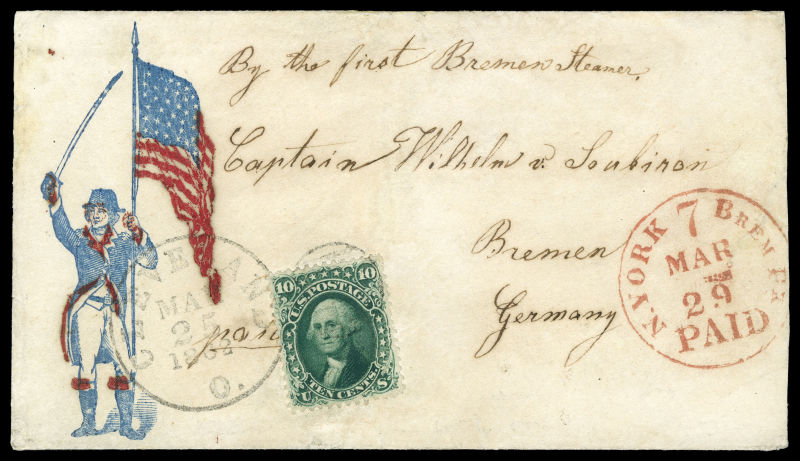 By the first Bremen Steamer,
Captain Wilhelm v. Soubiron
Bremen
Germany
N. YORK 7 BREM PK
MAR
29
PAID
MA
25
1862
O.
10 10
U.S. POSTAGE
TEN CENTS
U S